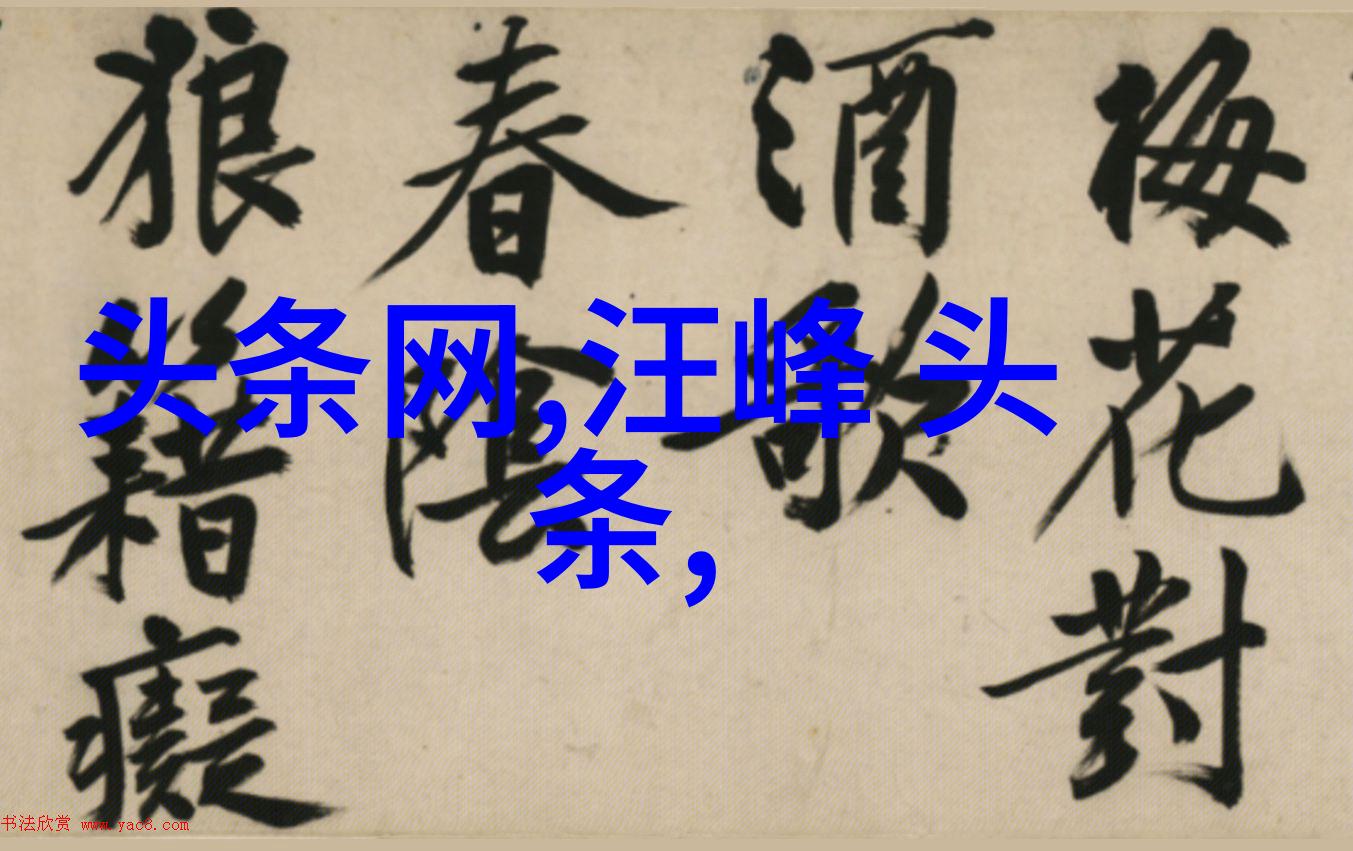 梅花對
酒歌
春陰
狼籍癡
头条网,汪峰 头
条,
书法欣赏 www.yac8.com